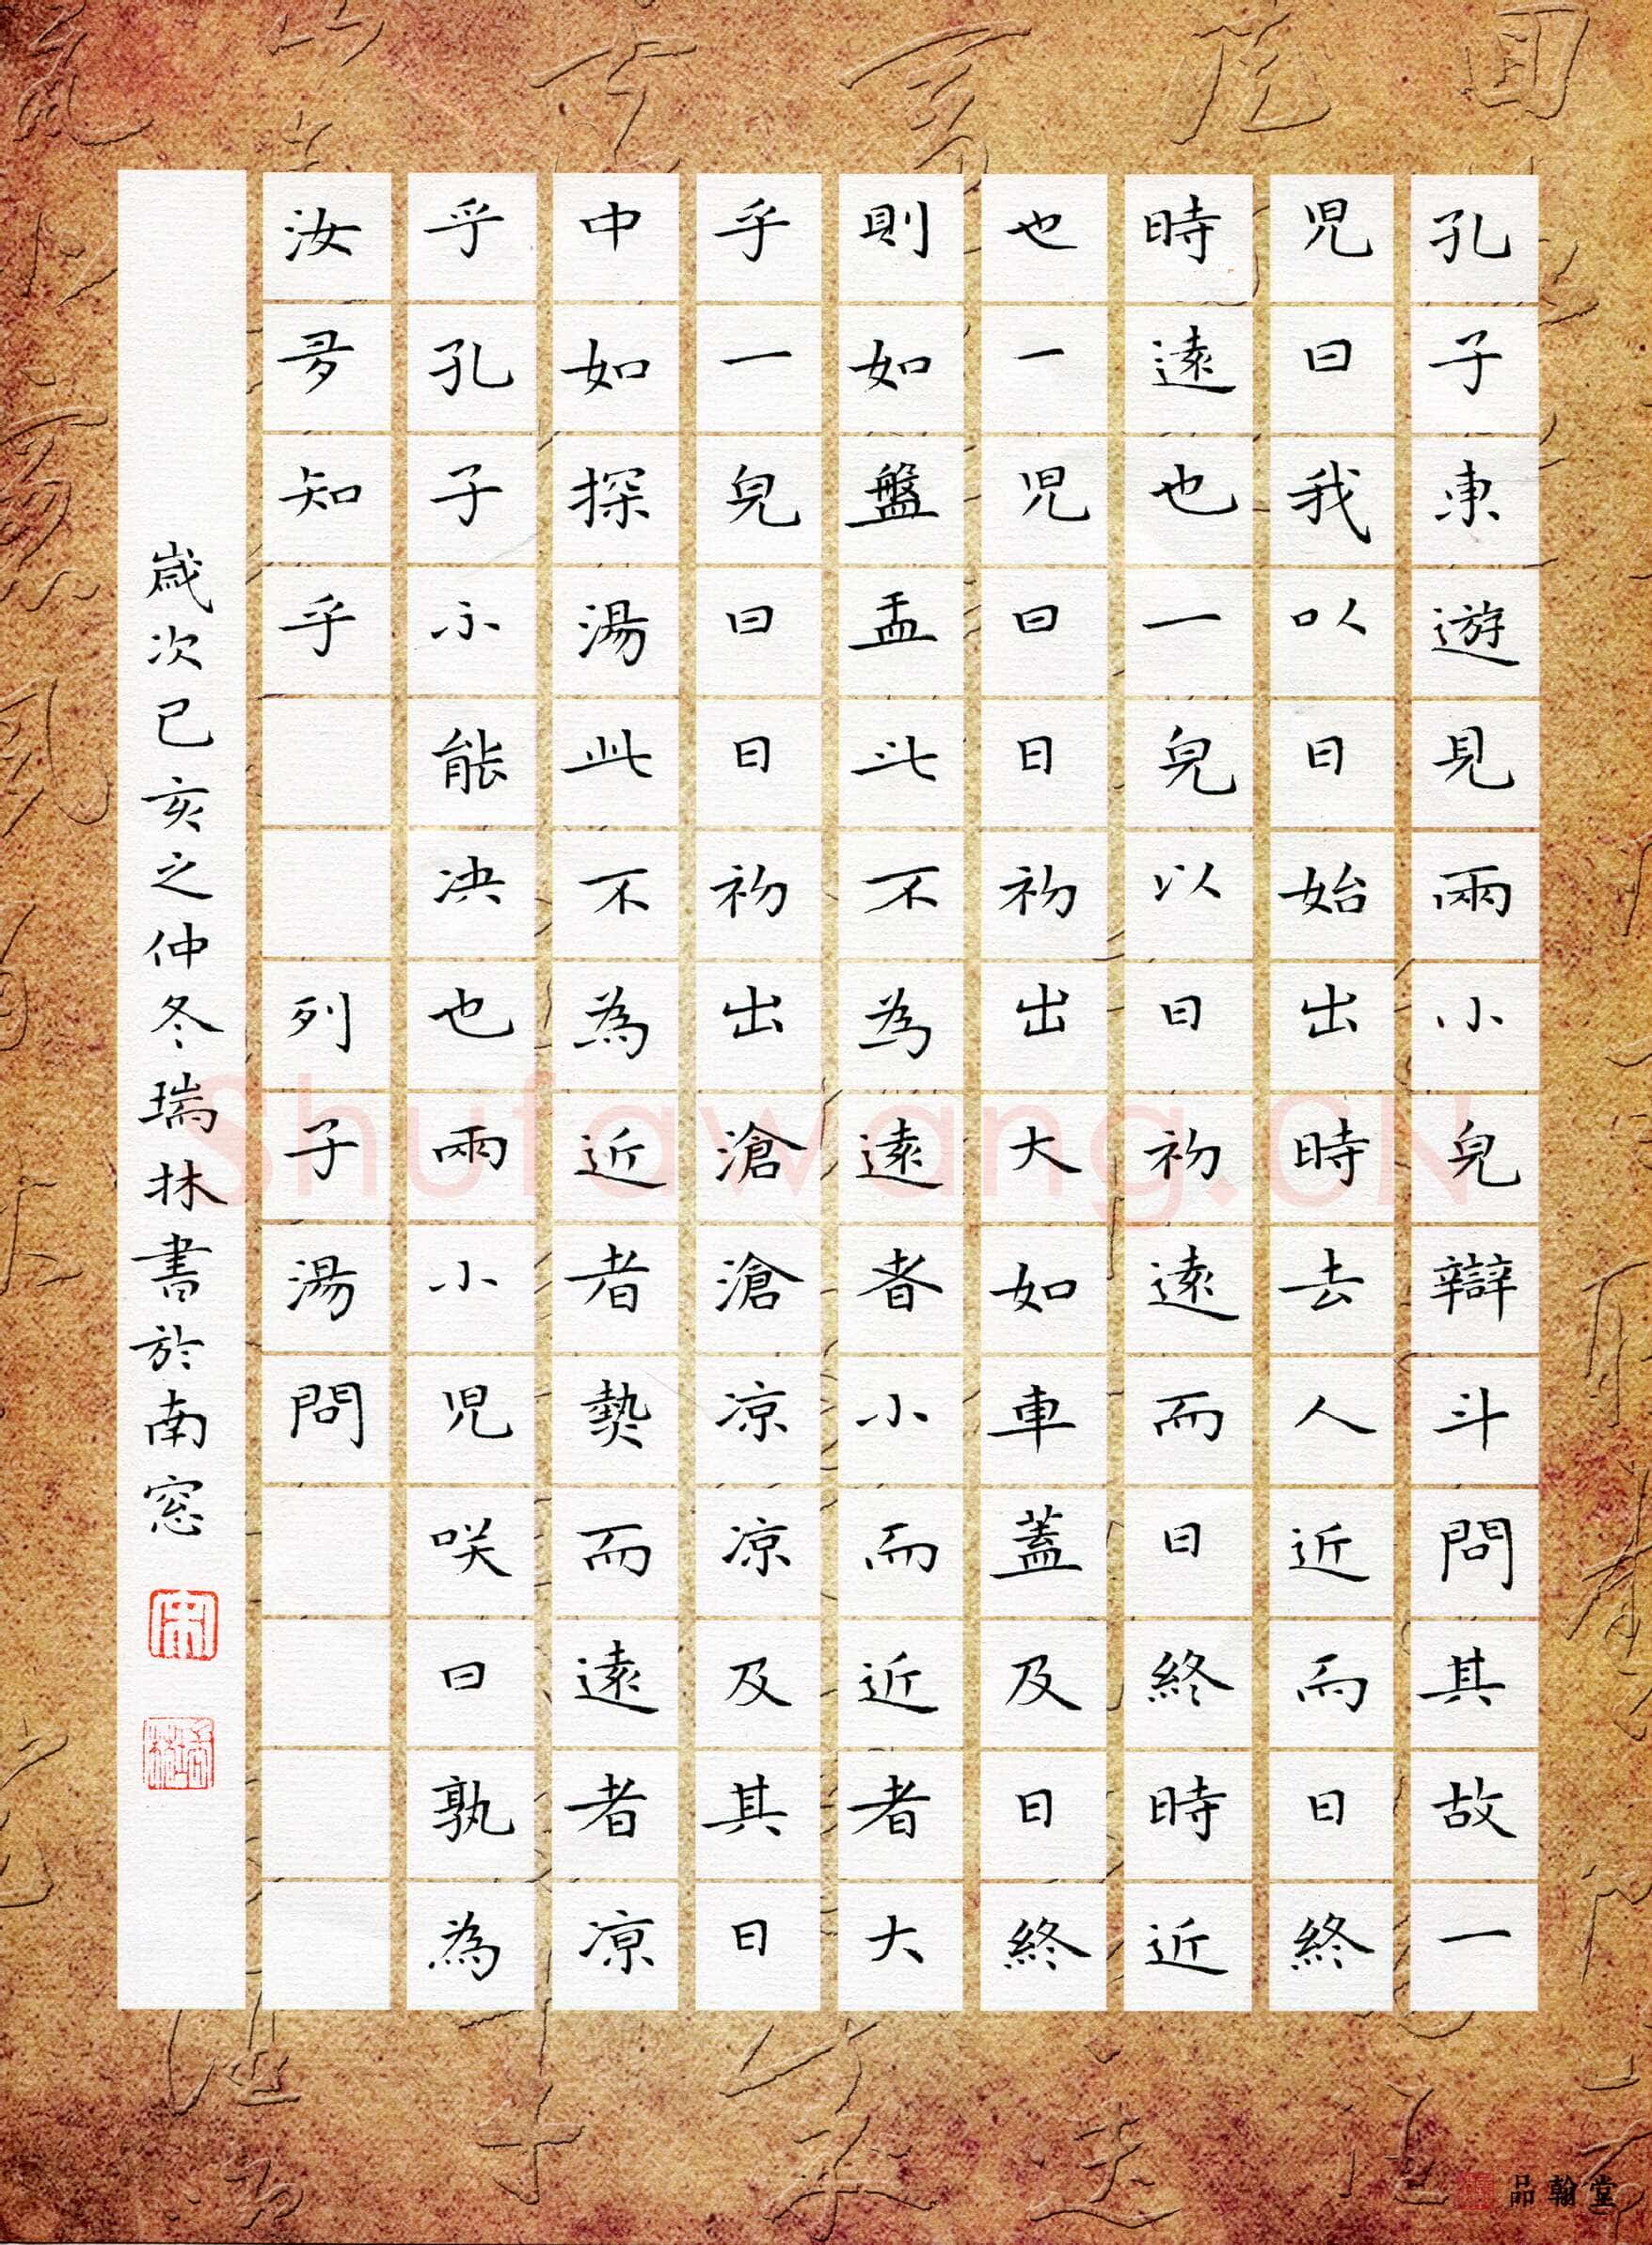 孔子東遊見兩小兒辯斗問其故一
児曰我以日始出時去人近而日終
時遠也一兒以日初遠而日終時近
也一児曰日初出大如車蓋及日終
則如盤盂此不為遠者小而近者大
乎一兒曰日初出滄滄凉凉及其日
中如探湯此不為近者熱而遠者凉
乎孔子不能决也兩小児咲曰孰為
汝多知乎 列子湯問
歲次己亥之仲冬瑞林書於南窓
Shufawang.CN
品翰堂